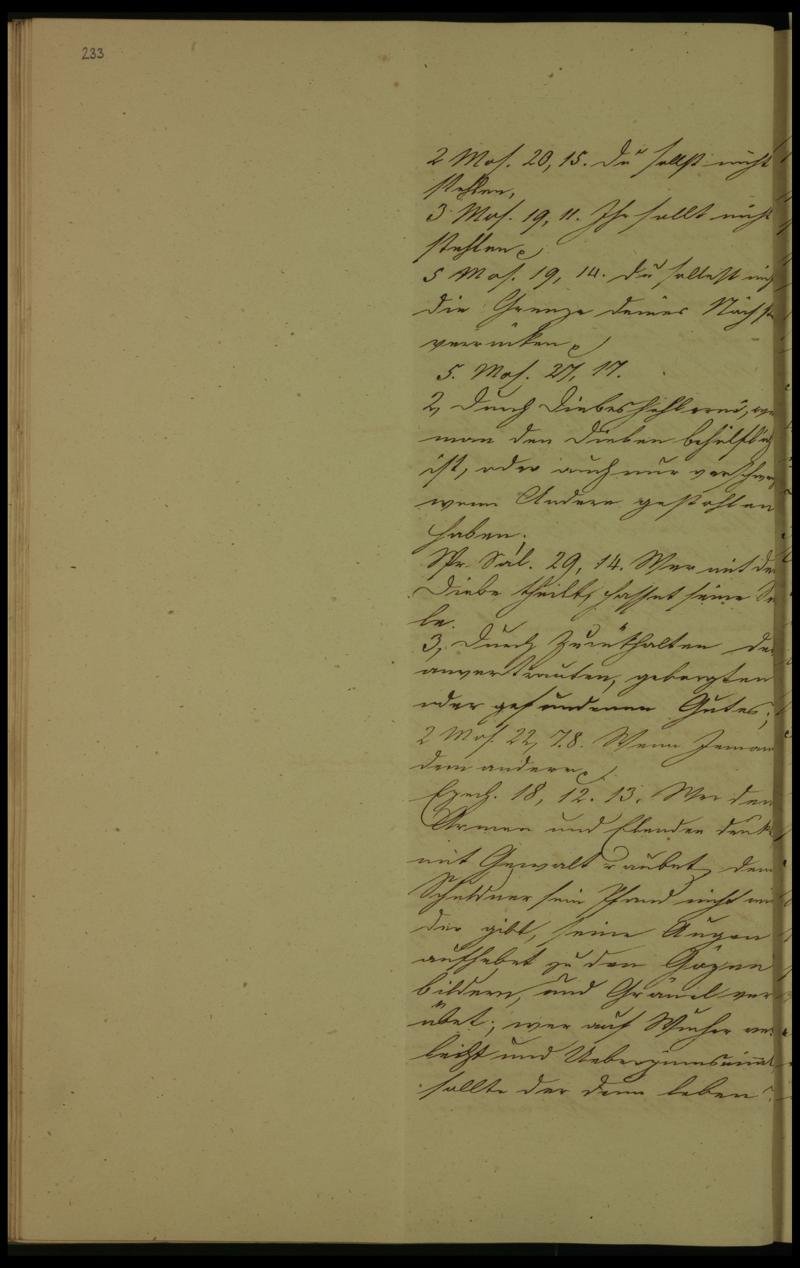 233
2 Mos. 20, 15. Du sollst nicht
stehlen,
3 Mos. 19, 11. Ihr sollt nicht
stehlen
5 Mos. 19, 14. Du sollest
die Grenze deines Nächst
verrücken
5. Mos. 27, 17.
2, Durch Diebeshehlerei,
man den Dieben behülflich
ist, oder auch nur
wenn Andere gestohlen
haben;
Spr. Sal. 29, 14. Wer mit
Diebe theilt, hasset seine See
le.
3, Durch Zurükhalten des
anvertrauten, geborgten
oder gefundenen Gutes;
2 Mos. 22, 7.8. Wenn Jeman
dem andern
Ezech. 18, 12. 13. Wer den
Armen und Elenden drükt
mit Gewalt raubet, dem
Schuldner sein Pfand nicht wie
der gibt, seine Augen
aufhebet zu den Gözen
bildern, und Gräuel ver
übet; wer auf Wucher
leiht und Ueberzins nimmt
sollte der denn leben?